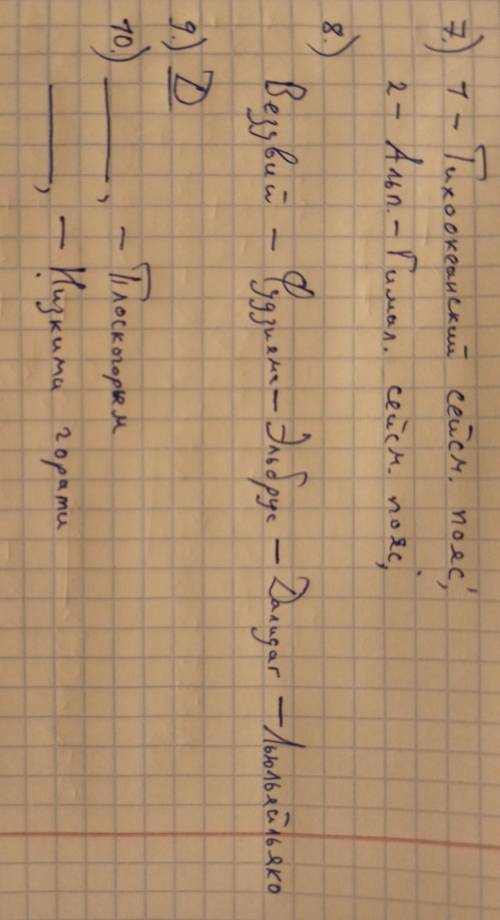 7.) 1 – Тихоокеанский сейсм. пояс;
2 – Альп. – Гимал. сейсм. пояс;
8.)
Везувий – Фудзияма – Эльбрус – Далидаг – Льюльяйльяко
9.) D
10.) ______, – Плоскогорьем
______, – Низкими горами